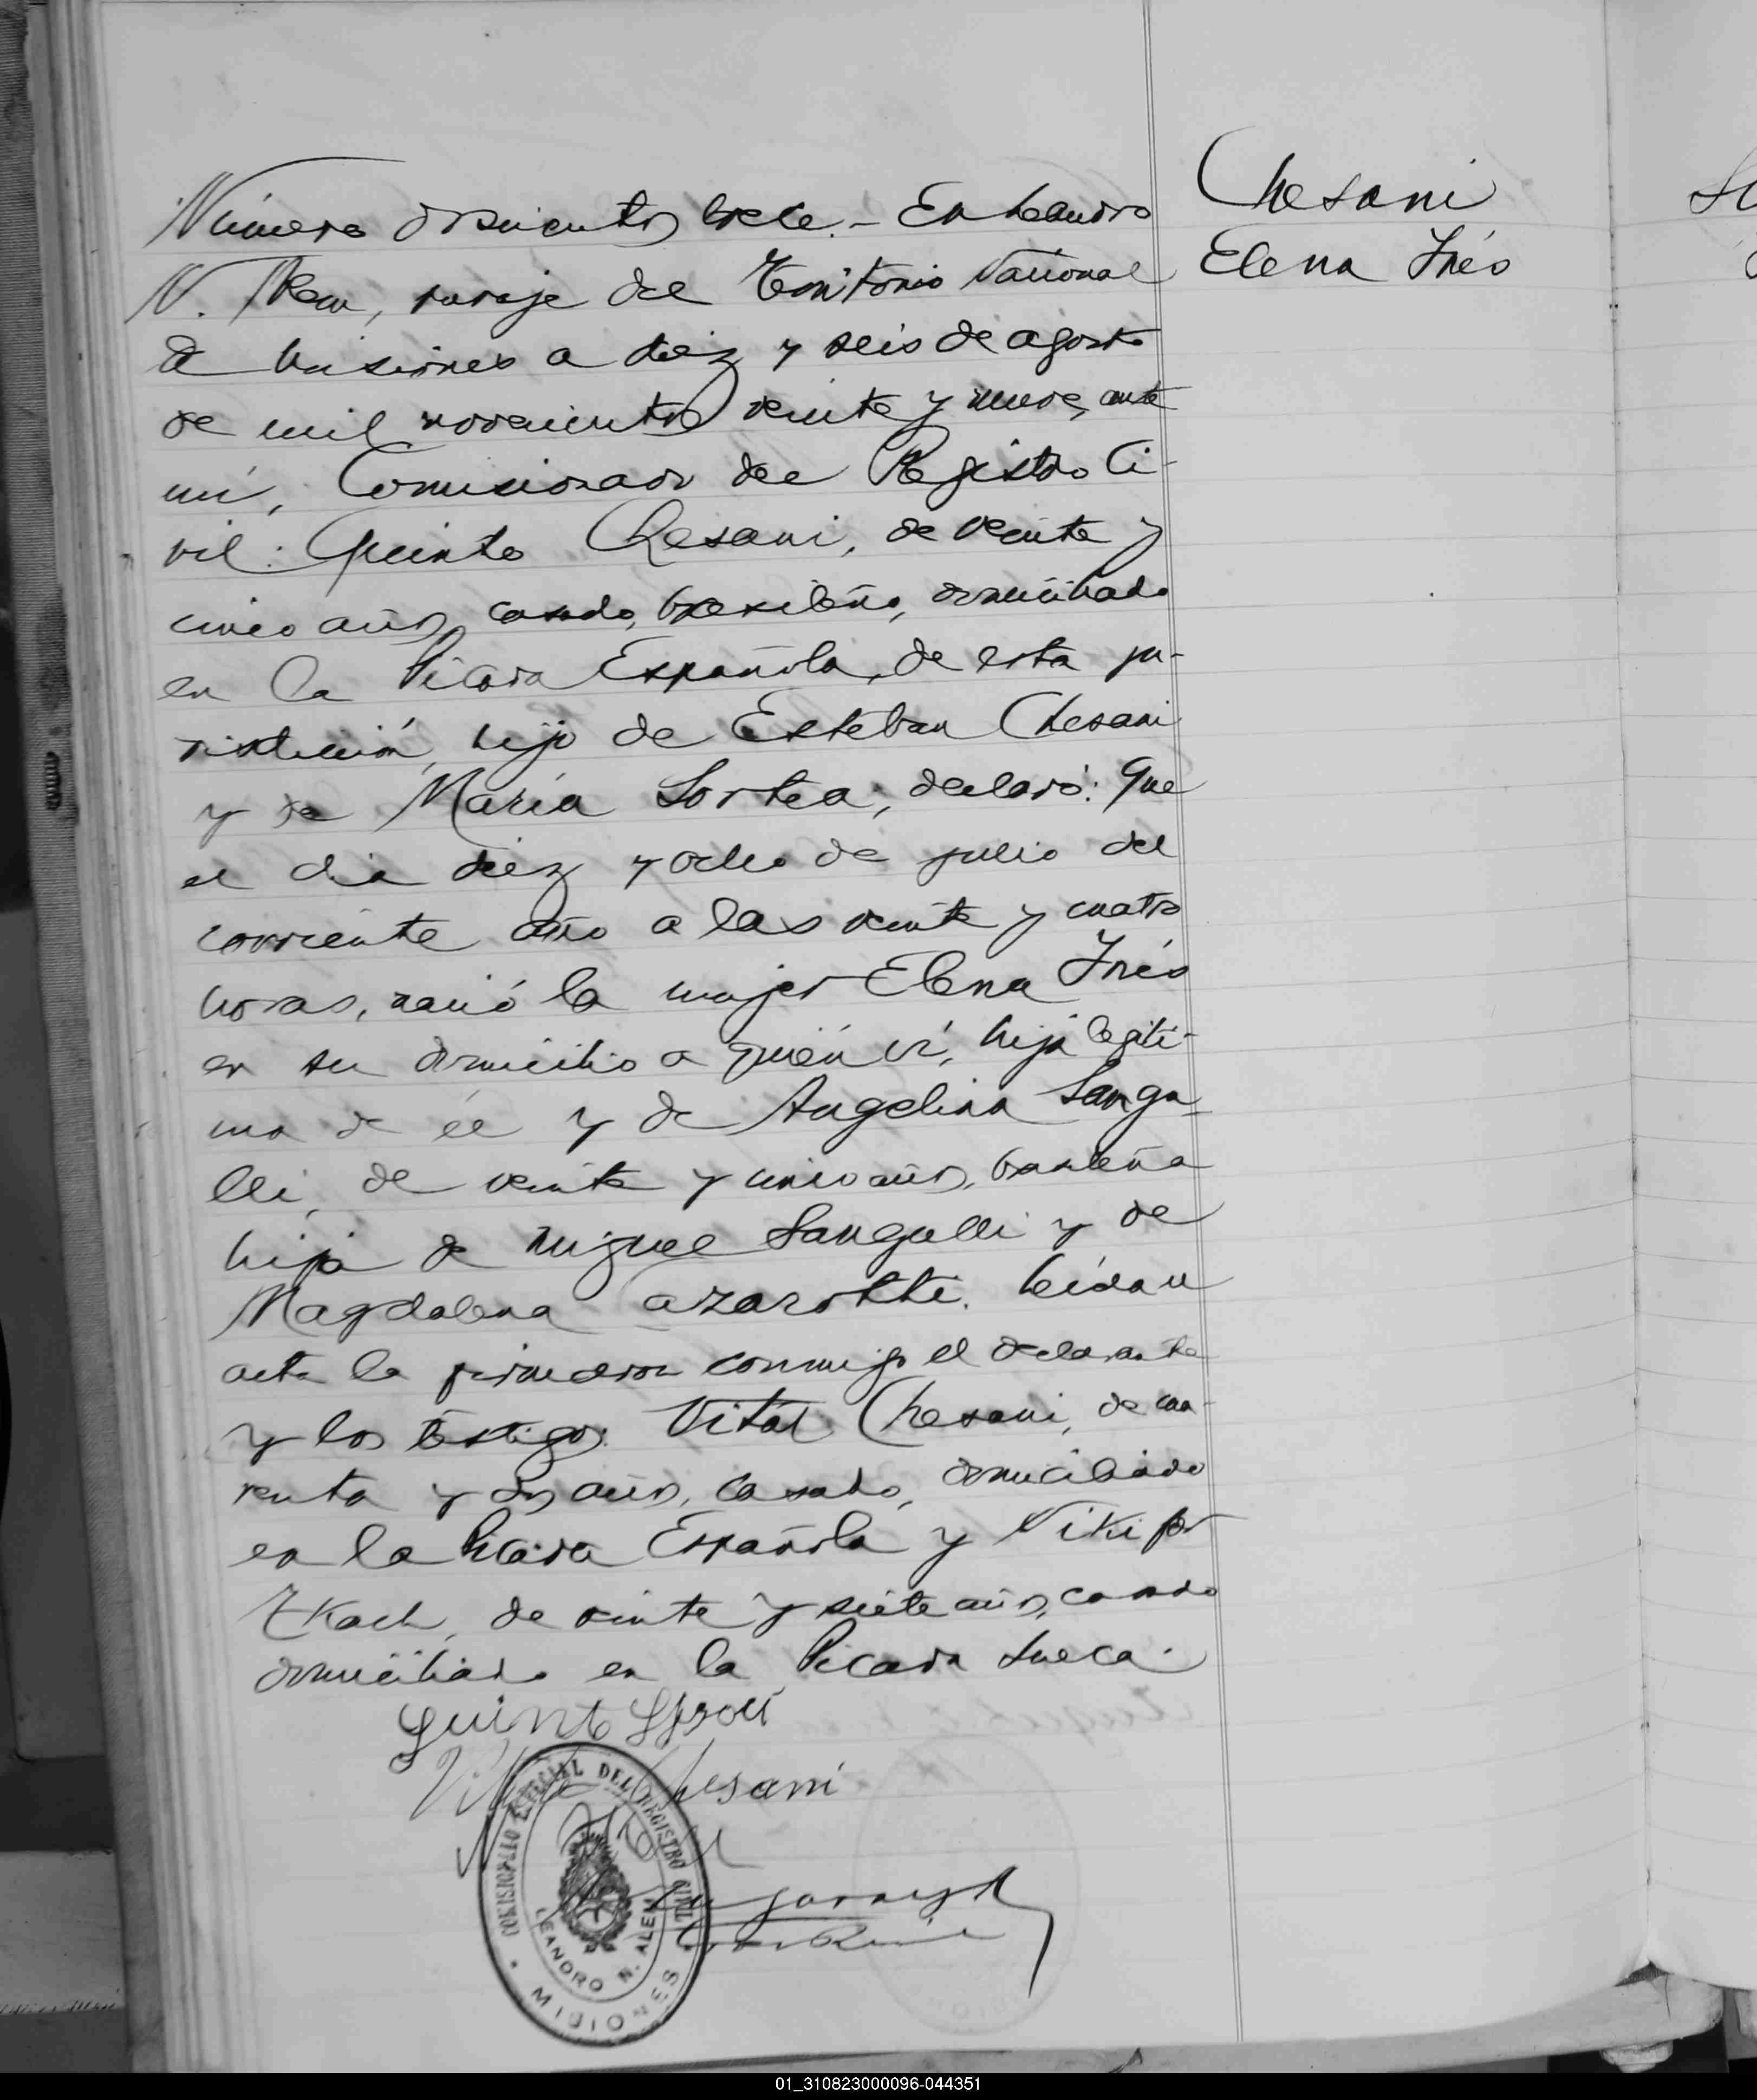 Número doscientos trece.- En Leandro
N. Alem, paraje del Territorio Nacional
de Misiones a diez y seis de agosto
de mil novecientos veinte y nueve, ante
mí, Comisionado del Registro Ci-
vil: Quinto Chesani, de veinte y
cinco años, casado, brasileño, domiciliado
en la Picada Española, de esta ju-
risdicción, hijo de Esteban Chesani
y de María Sortea, declaró: Que
el dia diez y ocho de julio del
corriente año a las veinte y cuatro
horas, nació la mujer Elena Inés
en su domicilio a quién ví, hija legíti-
ma de él y de Angelina Sanga-
lli, de veinte y cinco años, brasileña
hija de Miguel Sangalli y de
Magdalena Azarotti. Leída el
acta la firmaron conmigo el declarante
y los testigos: Vital Chesani, de cua-
renta y dos años, casado, domiciliado
en la Picada Española y Nikifor
Tkach, de veinte y siete años, casado
domiciliado en la Picada Sueca.
Chesani
Elena Inés
Quinto
Chesani
COMISIONADO ESPECIAL DEL REGISTRO CIVIL
LEANDRO N. ALEM
MISIONES
01_310823000096-044351